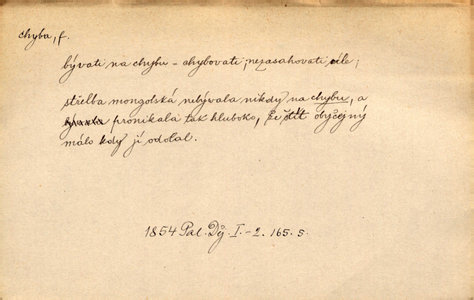 chyba, f.
bývati na chybu - chybovati, nezasahovati cíle;
střelba mongolská nebývala nikdy na chybu, a
pronikala tak hluboko, že štít obyčejný
málo kdy jí odolal.
1854 Pal. Děj. I.-2. 165. s.